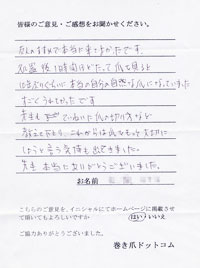 皆様のご意見・ご感想をお聞かせください。
のすすめで本当に来てよかったです。
処置後1時間ほどたって爪を見ると
本当の自分の自然な爪になっていました
すごくうれしかったです
先生も ていねいに爪の切り方など
教えて下さり、これからは爪をもっと大切に
しようと言う気持も出てきました。
先生 本当にありがとうございました。
お名前
こちらのご意見を、イニシャルにてホームページに掲載させ
て頂いてもよろしいですか はい・いいえ
ご協力ありがとうございました。
巻き爪ドットコム